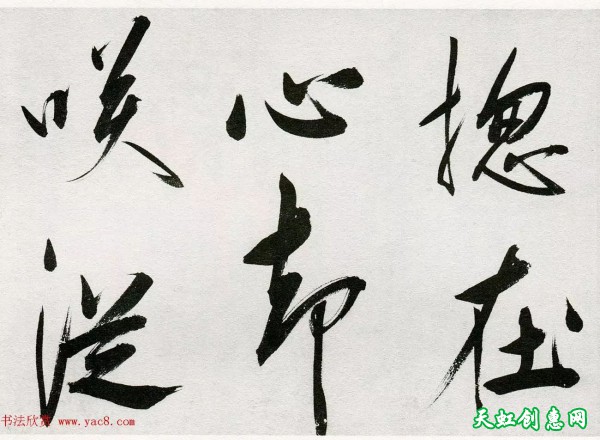 揔在
心却
咲從
书法欣赏 www.yac8.com
天虹创意网